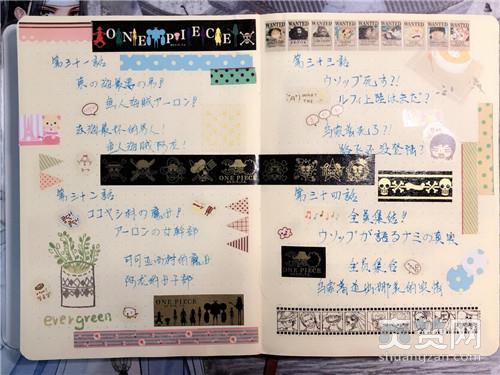 ONE PIECE
第三十一話
東の海最悪の男!
魚人海賊アーロン!
东海最坏的男人!
鱼人海贼阿龙!
ONE PIECE
第三十二話
ココヤシ村の魔女!
アーロンの女幹部
可可亚西村的魔女
阿龙的女干部
evergreen
ONE PIECE
WANTED WANTED WANTED WANTED WANTED WANTED WANTED WANTED WANTED
第三十三話
ウソップ死す?!
"A" WHAT THE
ルフィ上陸はまだ?
乌索普死了?!
路飞还没登陆?
第三十四話
全員集結!
ウソップが語るナミの真実
ONE PIECE
全员集合
乌索普道出娜美的实情
shuangzan.com